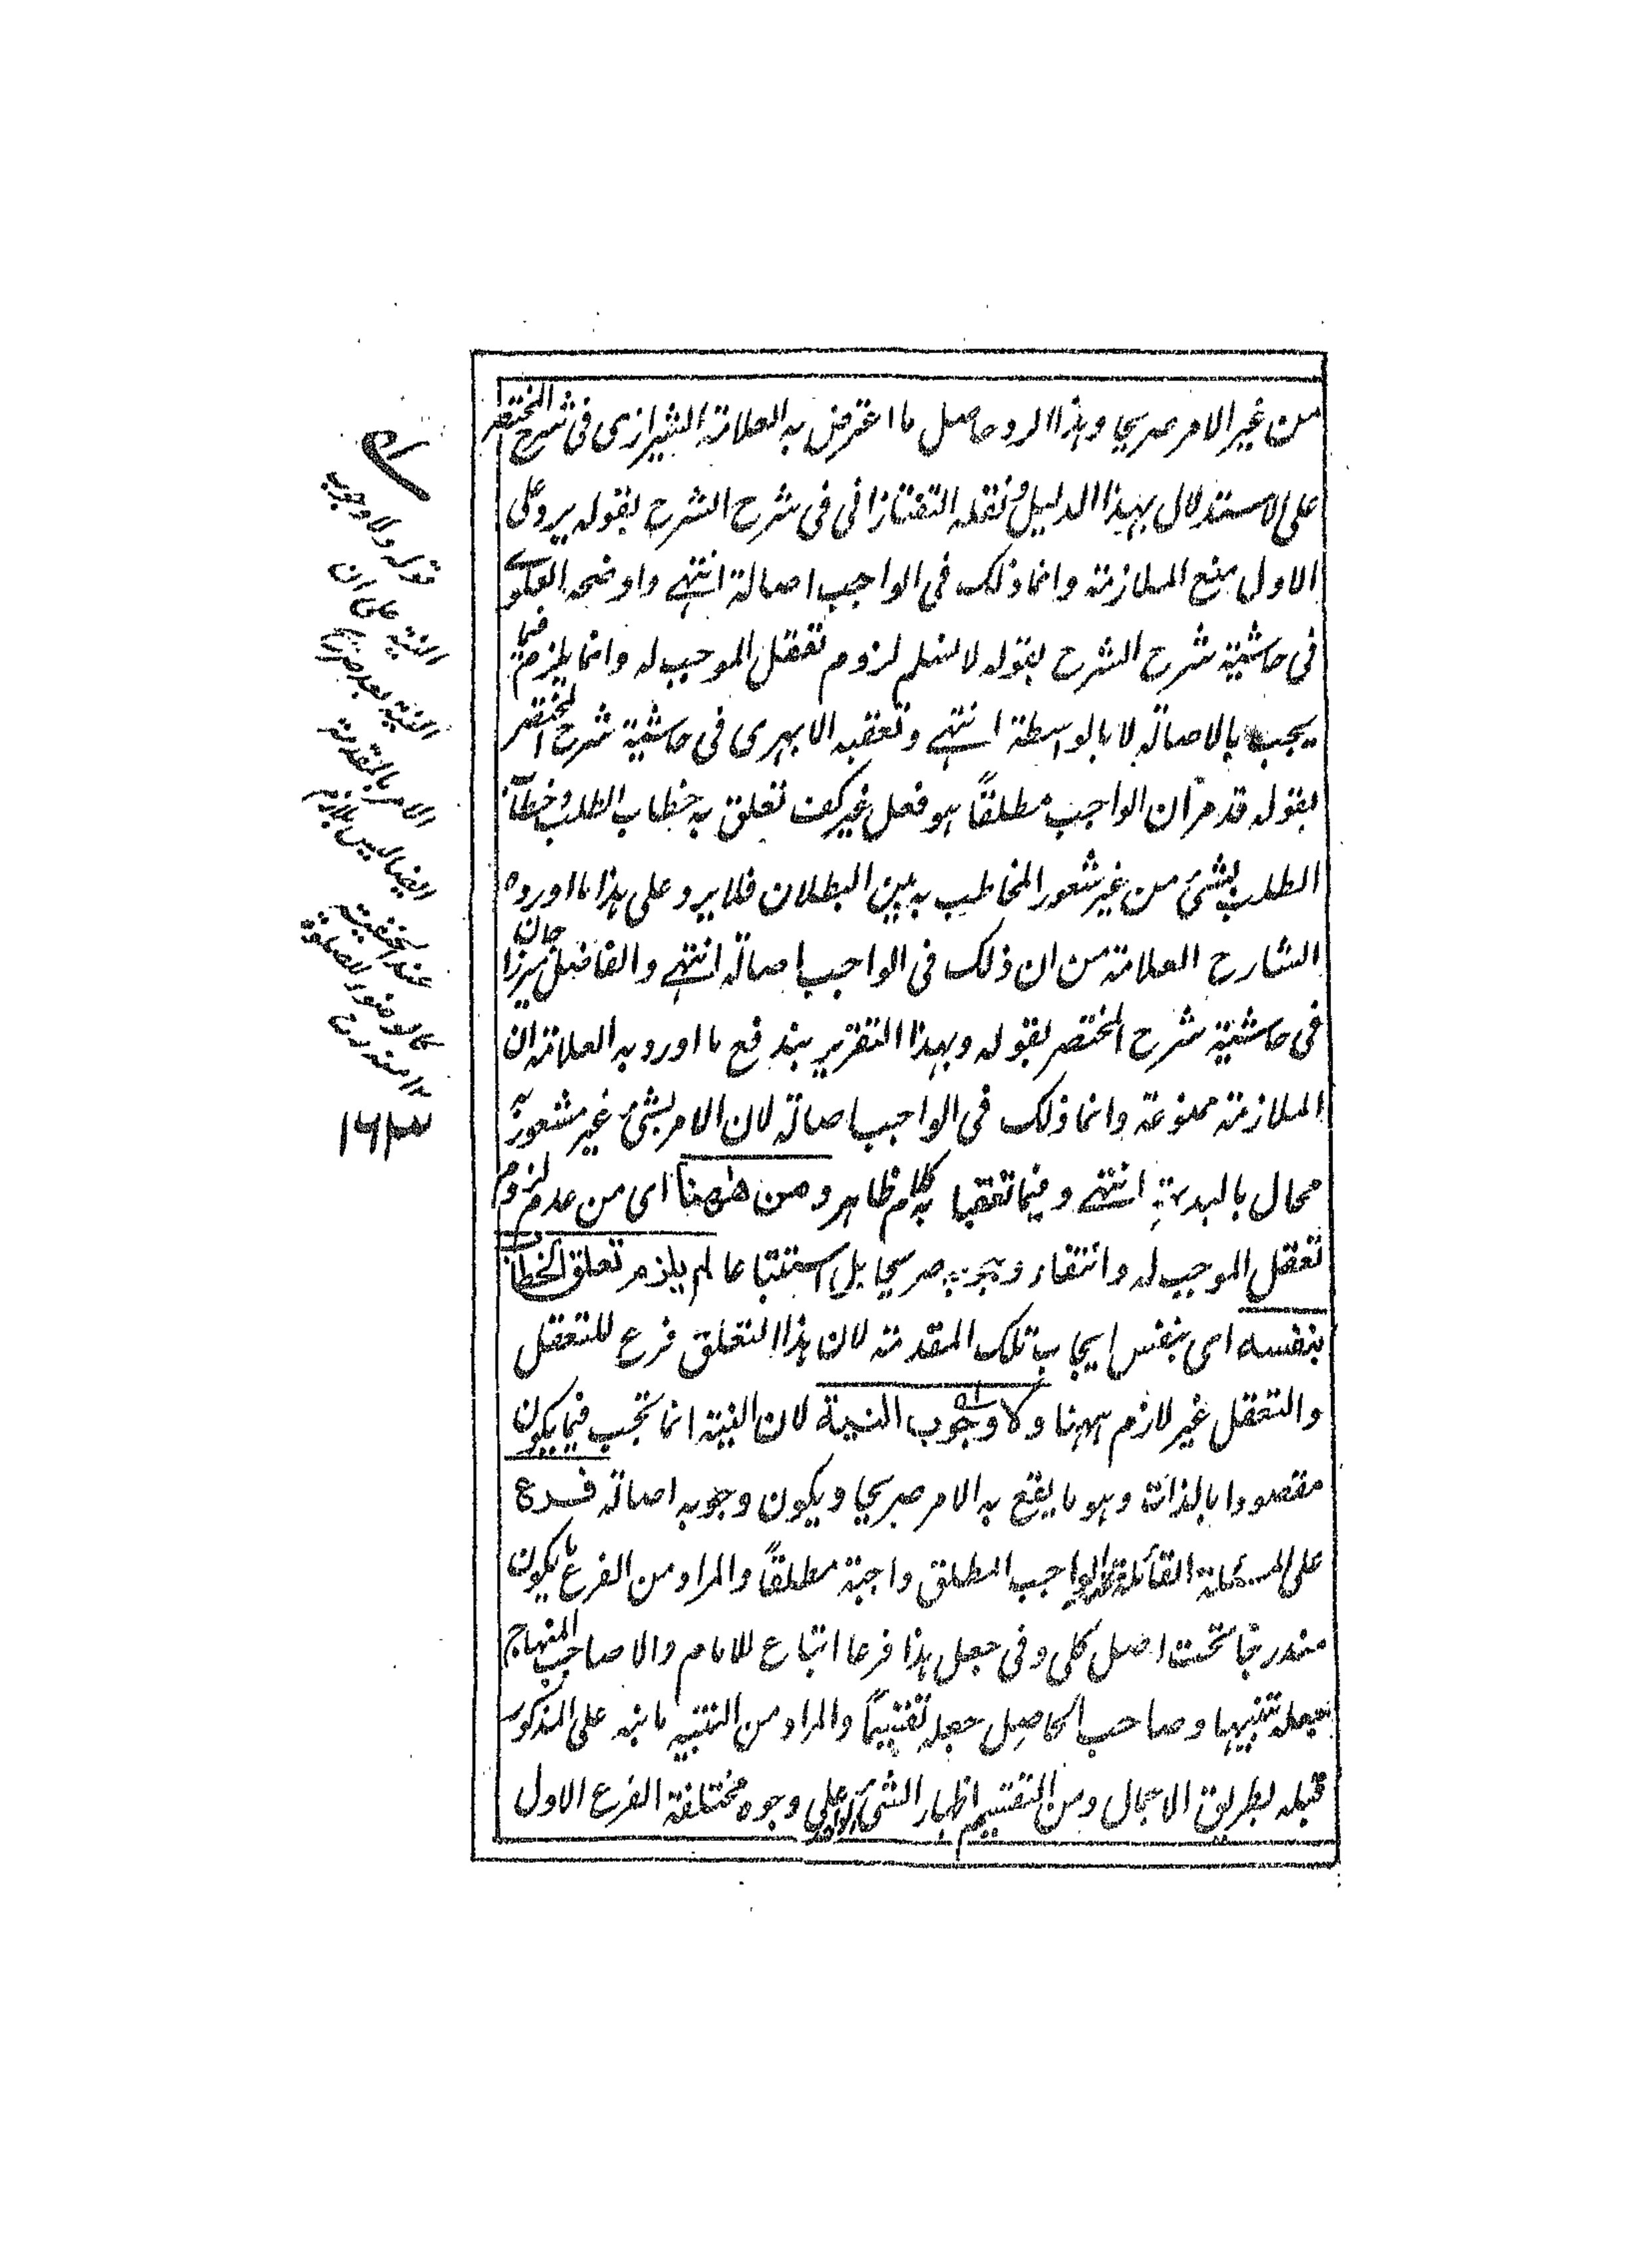 من غير الامر صريحا وهذا الرد حاصل ما اعترض به العلامة الشيرازى فى شرح المختصر
على الاستدلال بهذا الدليل ونقله التفتازانى فى شرح الشرح بقوله يرد على
الاول منع الملازمة وانما ذلك فى الواجب اصالة انتهى واوضحه العلوى
فى حاشية شرح الشرح بقوله لا نسلم لزوم تعقل الموجب له وانما يلزم فيما
يجب بالاصالة لا بالواسطة انتهى وتعقبه الابهرى فى حاشية شرح المختصر
بقوله قد مر ان الواجب مطلقاً هو فعل غير كف تعلق به خطاب الطلب وخطاب
الطلب بشئ من غير شعور المخاطب به بين البطلان فلا يرد على هذا ما اورده
الشارح العلامة من ان ذلك فى الواجب اصالة انتهى والفاضل ميرزا جان
فى حاشية شرح المختصر بقوله وبهذا التقرير يندفع ما اورد به العلامة ان
الملازمة ممنوعة وانما ذلك فى الواجب اصالة لان الامر بشئ غير مشعور به
محال بالبديهة انتهى وفيما تعقبا به كلام ظاهر ومن ههنا اى من عدم لزوم
تعقل الموجب له وانتفاء وجوبه صريحا بل استتباعا لم يلزم تعلق الخطاب
بنفسه اى بنفس ايجاب تلك المقدمة لان هذا التعلق فرع للتعقل
والتعقل غير لازم ههنا ولا وجوب النية لان النية انما تجب فيما يكون
مقصودا بالذات وهو ما يقع به الامر صريحا ويكون وجوبه اصالة فرع
على المسئلة القائلة مقدمة الواجب المطلق واجبة مطلقاً والمراد من الفرع ما يكون
مندرجا تحت اصل كلى وفى جعل هذا فرعا اتباع للامام والا صاحب المنهاج
جعله تنبيها وصاحب الحاصل جعله تقسيماً والمراد من التنبيه ما نبه على المذكور
قبله بطريق الاجمال ومن التقسيم اظهار الشئ الواحد على وجوه مختلفة الفرع الاول
قوله ولا وجوب
النية على ان
النية بعد
الامر بالمقدمة
ايضا ليس بلازم
عند الحنفية
كالوضوء للصلوة
١٢ منه
١٦٣